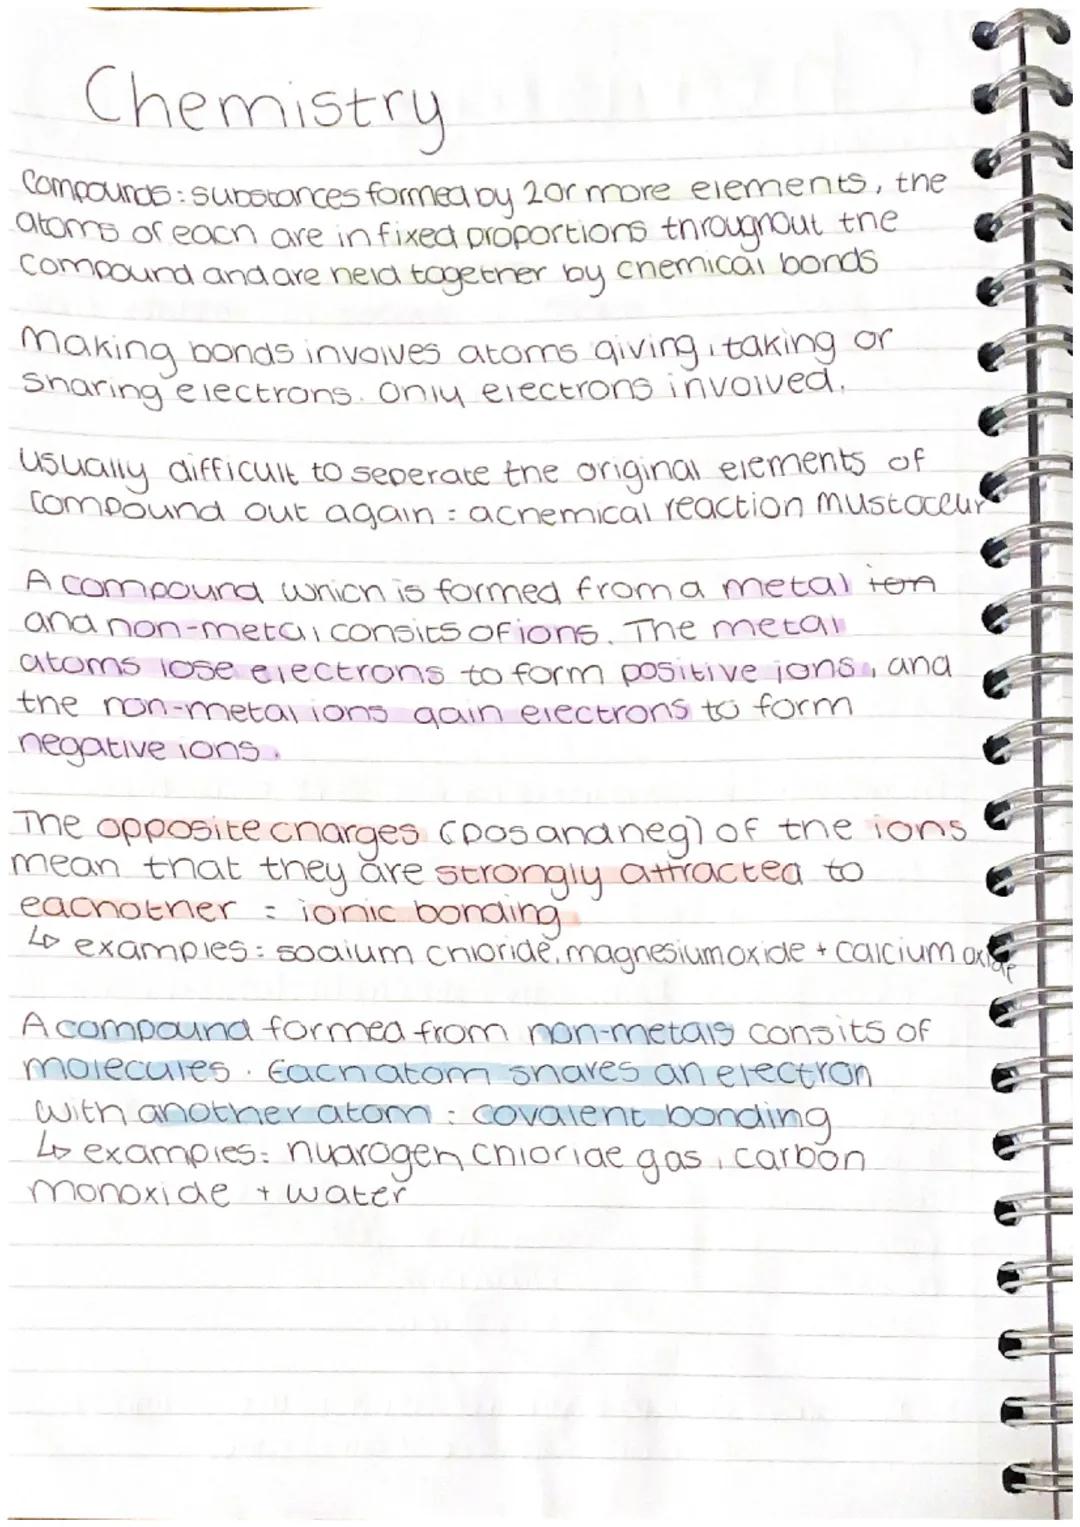 Chemistry
Compounds: substances formed by 2 or more elements, the
atoms of each are in fixed proportions throughout the
compound and are held together by chemical bonds
Making bonds involves atoms giving, taking or
sharing electrons. Only electrons involved.
Usually difficult to seperate the original elements of
compound out again : a chemical reaction must occur
A compound which is formed from a metal ion
and non-metal consits of ions. The metal
atoms lose electrons to form positive ions, and
the non-metal ions gain electrons to form
negative ions.
The opposite charges (pos and neg) of the ions
mean that they are strongly attracted to
eachother = ionic bonding
↳ examples: sodium chloride, magnesium oxide + calcium oxide
A compound formed from non-metals consits of
molecules. Each atom shares an electron
with another atom : covalent bonding
↳ examples: hydrogen chloride gas, carbon
monoxide + water